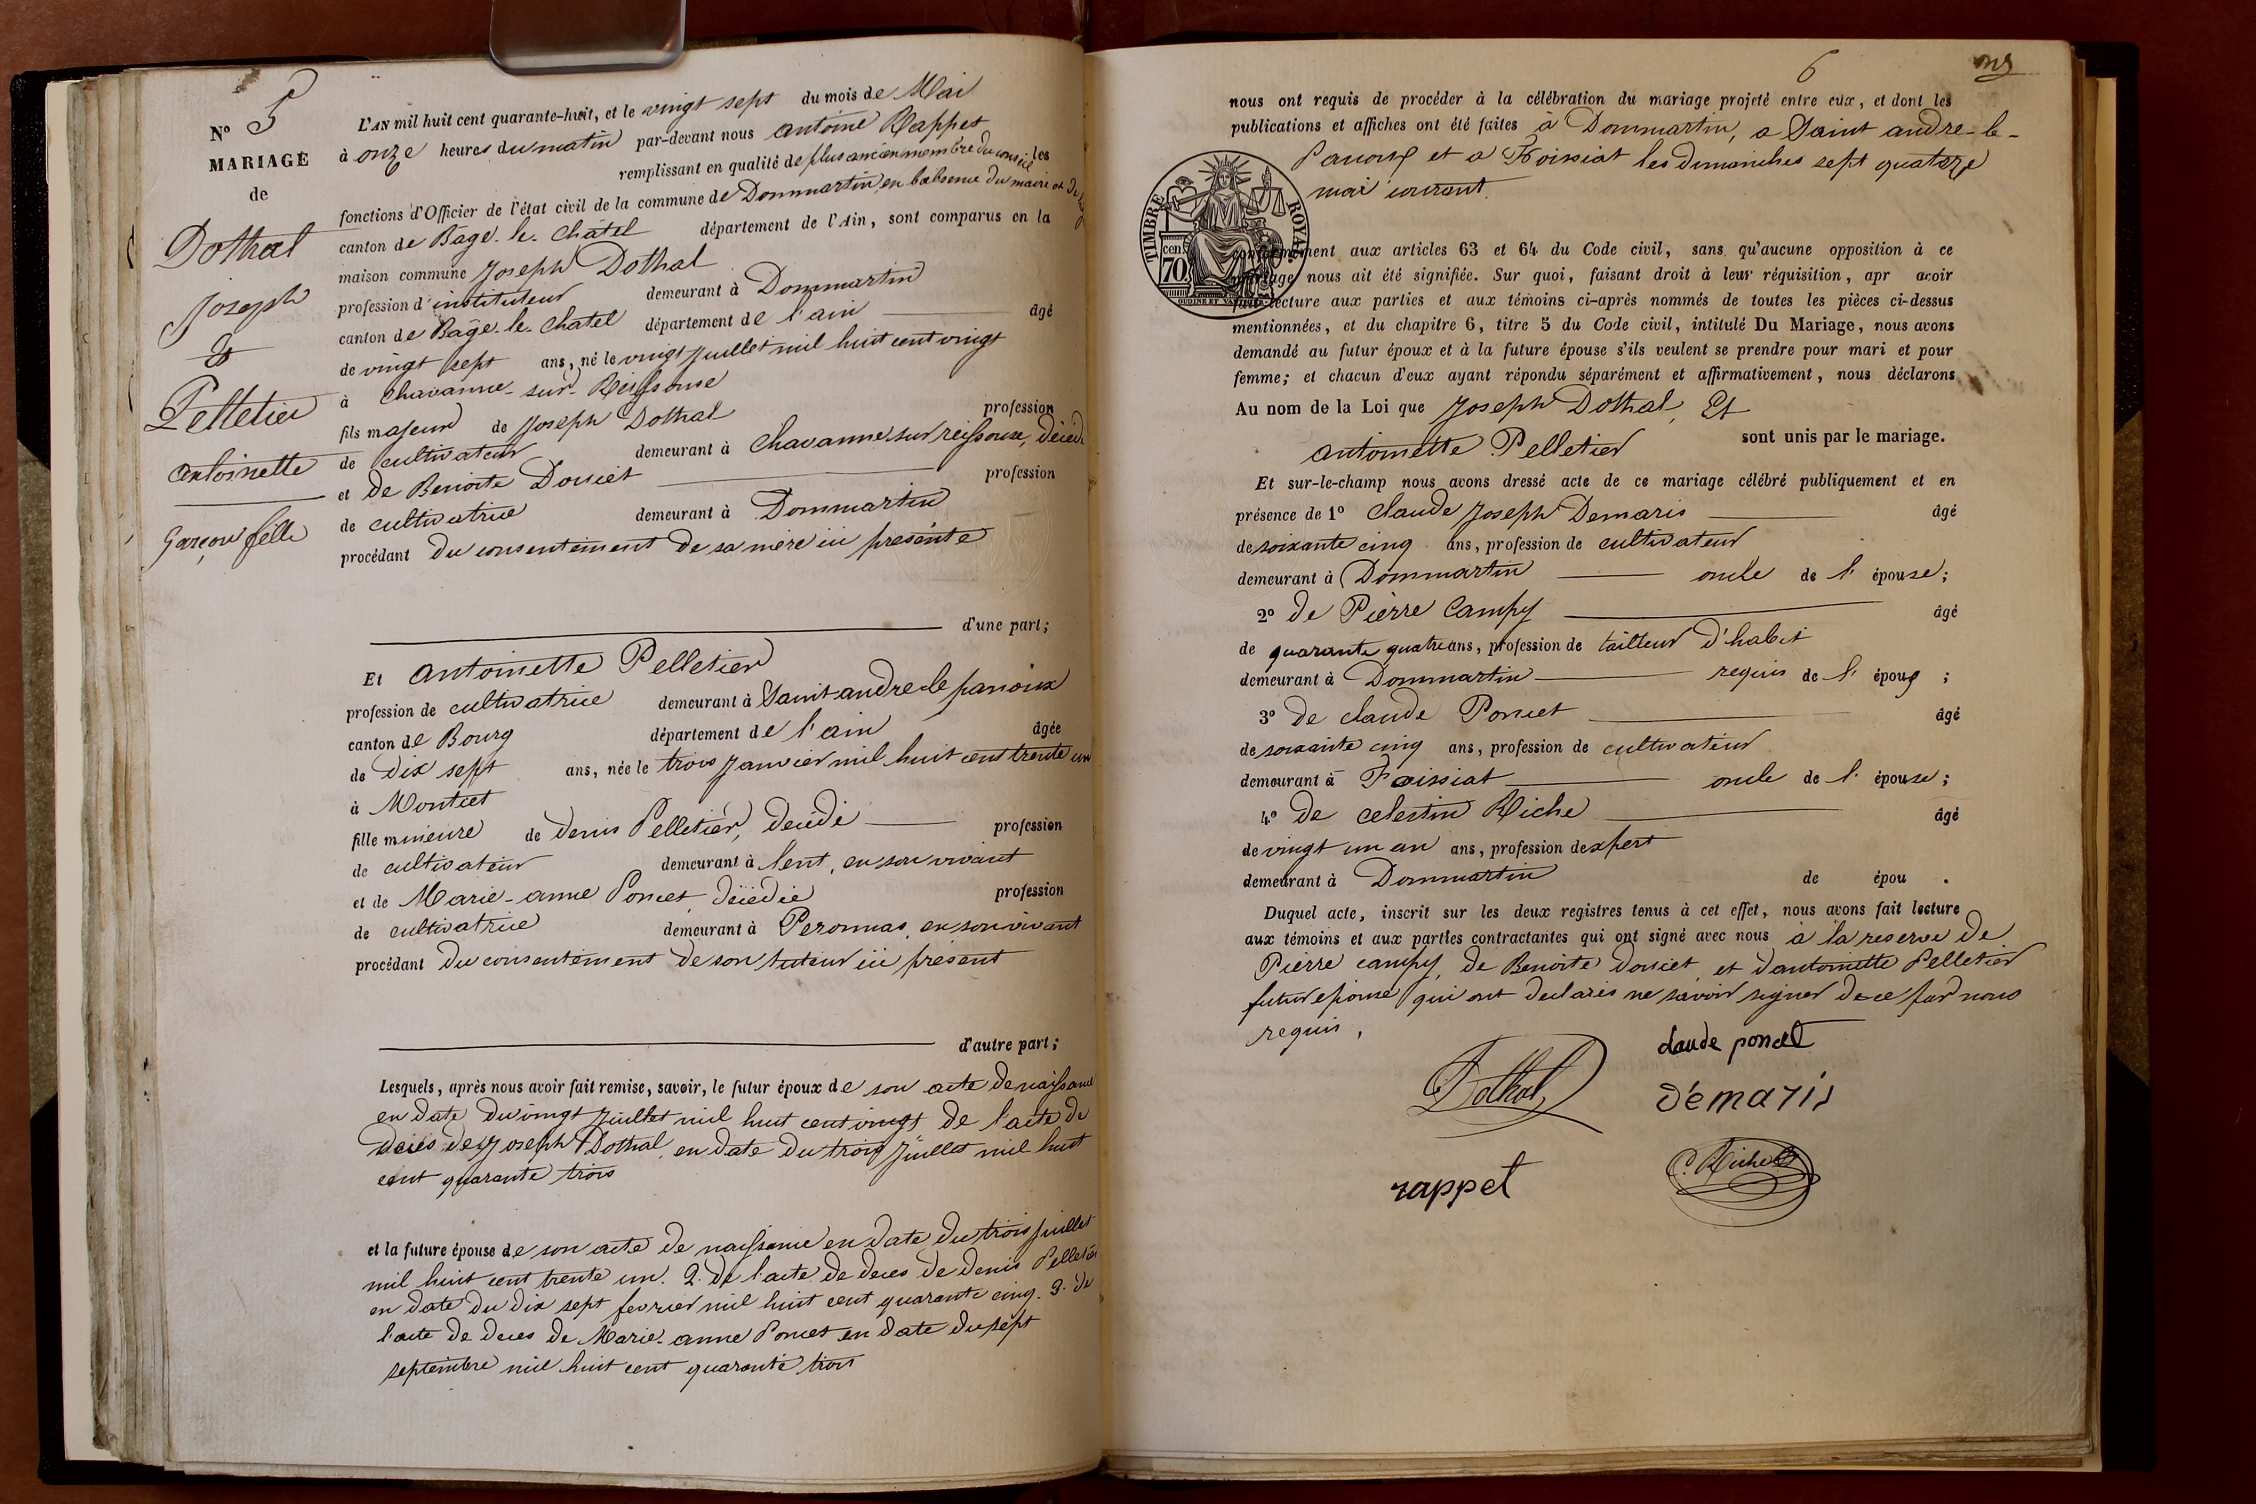 N° 5
MARIAGE
de
Dothal
Joseph
&
Pelletier
antoinette
Garçon fille
L'AN mil huit cent quarante-huit, et le vingt sept du mois de Mai
à onze heures du matin par-devant nous antoine Rappet
remplissant en qualité de plus ancien membre du conseil les
fonctions d'Officier de l'état civil de la commune de Dommartin en l'absence du maire et de
canton de Bâgé-le-châtel département de l'Ain, sont comparus en la
maison commune Joseph Dothal
profession d'instituteur demeurant à Dommartin
canton de Bâgé-le-chatel département de l'ain âgé
de vingt sept ans, né le vingt juillet mil huit cent vingt
à Chavanne-sur-Reissouse
fils majeur de Joseph Dothal profession
de cultivateur demeurant à chavanne sur reissouse, décédé
et de Benoite Doucet profession
de cultivatrice demeurant à Dommartin
procédant du consentement de sa mère ici présente
d'une part;
Et antoinette Pelletier
profession de cultivatrice demeurant à Saint andre-le panoux
canton de Bourg département de l'ain âgée
de dix sept ans, née le trois janvier mil huit cent trente un
à Montcet
fille mineure de denis Pelletier, décédé profession
de cultivateur demeurant à lent, en son vivant
et de Marie-anne Poncet décédée profession
de cultivatrice demeurant à Peronnas, en son vivant
procédant du consentement de son tuteur ici présent
d'autre part;
Lesquels, après nous avoir fait remise, savoir, le futur époux de son acte de naissance
en date du vingt juillet mil huit cent vingt de l'acte de
décès de Joseph Dothal, en date du trois juillet mil huit
cent quarante trois
et la future épouse de son acte de naissance en date du trois juillet
mil huit cent trente un. 2. de l'acte de deces de denis Pelletier
en date du dix sept fevrier mil huit cent quarante cinq. 3. de
l'acte de deces de Marie-anne Poncet en date du sept
septembre mil huit cent quarante trois
6
nous ont requis de procéder à la célébration du mariage projeté entre eux, et dont les
publications et affiches ont été faites à Dommartin, a Saint andre-le-
Panoux et a Foissiat les dimanches sept quatorze
mai courant.
TIMBRE ROYAL
70 cen.
conformément aux articles 63 et 64 du Code civil, sans qu'aucune opposition à ce
mariage nous ait été signifiée. Sur quoi, faisant droit à leur réquisition, apr avoir
fait lecture aux parties et aux témoins ci-après nommés de toutes les pièces ci-dessus
mentionnées, et du chapitre 6, titre 5 du Code civil, intitulé Du Mariage, nous avons
demandé au futur époux et à la future épouse s'ils veulent se prendre pour mari et pour
femme; et chacun d'eux ayant répondu séparément et affirmativement, nous déclarons
Au nom de la Loi que Joseph Dothal, Et
antoinette Pelletier sont unis par le mariage.
Et sur-le-champ nous avons dressé acte de ce mariage célébré publiquement et en
présence de 1° claude Joseph Demaris âgé
de soixante cinq ans, profession de cultivateur
demeurant à Dommartin oncle de l' épouse;
2° de Pierre Campy âgé
de quarante quatre ans, profession de tailleur d'habit
demeurant à Dommartin requis de l' époux ;
3° de claude Poncet âgé
de soixante cinq ans, profession de cultivateur
demeurant à Foissiat oncle de l' épouse;
4° de celestin Riche âgé
de vingt un an ans, profession dexpert
demeurant à Dommartin de épou .
Duquel acte, inscrit sur les deux registres tenus à cet effet, nous avons fait lecture
aux témoins et aux parties contractantes qui ont signé avec nous à la reserve de
Pierre campy, de Benoite doucet et d'antoinette Pelletier
future epouse qui ont declarés ne savoir signer de ce par nous
requis,
Dothal
claude poncet
démaris
rappet
C. Riche